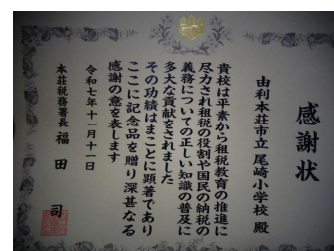 感謝状
由利本荘市立 尾崎小学校 殿
貴校は平素から租税教育の推進に
尽力され租税の役割や国民の納税の
義務についての正しい知識の普及に
多大な貢献をされました
その功績はまことに顕著であり
ここに記念品を贈り深甚なる
感謝の意を表します
令和七年十一月十一日
本荘税務署長 福田 司